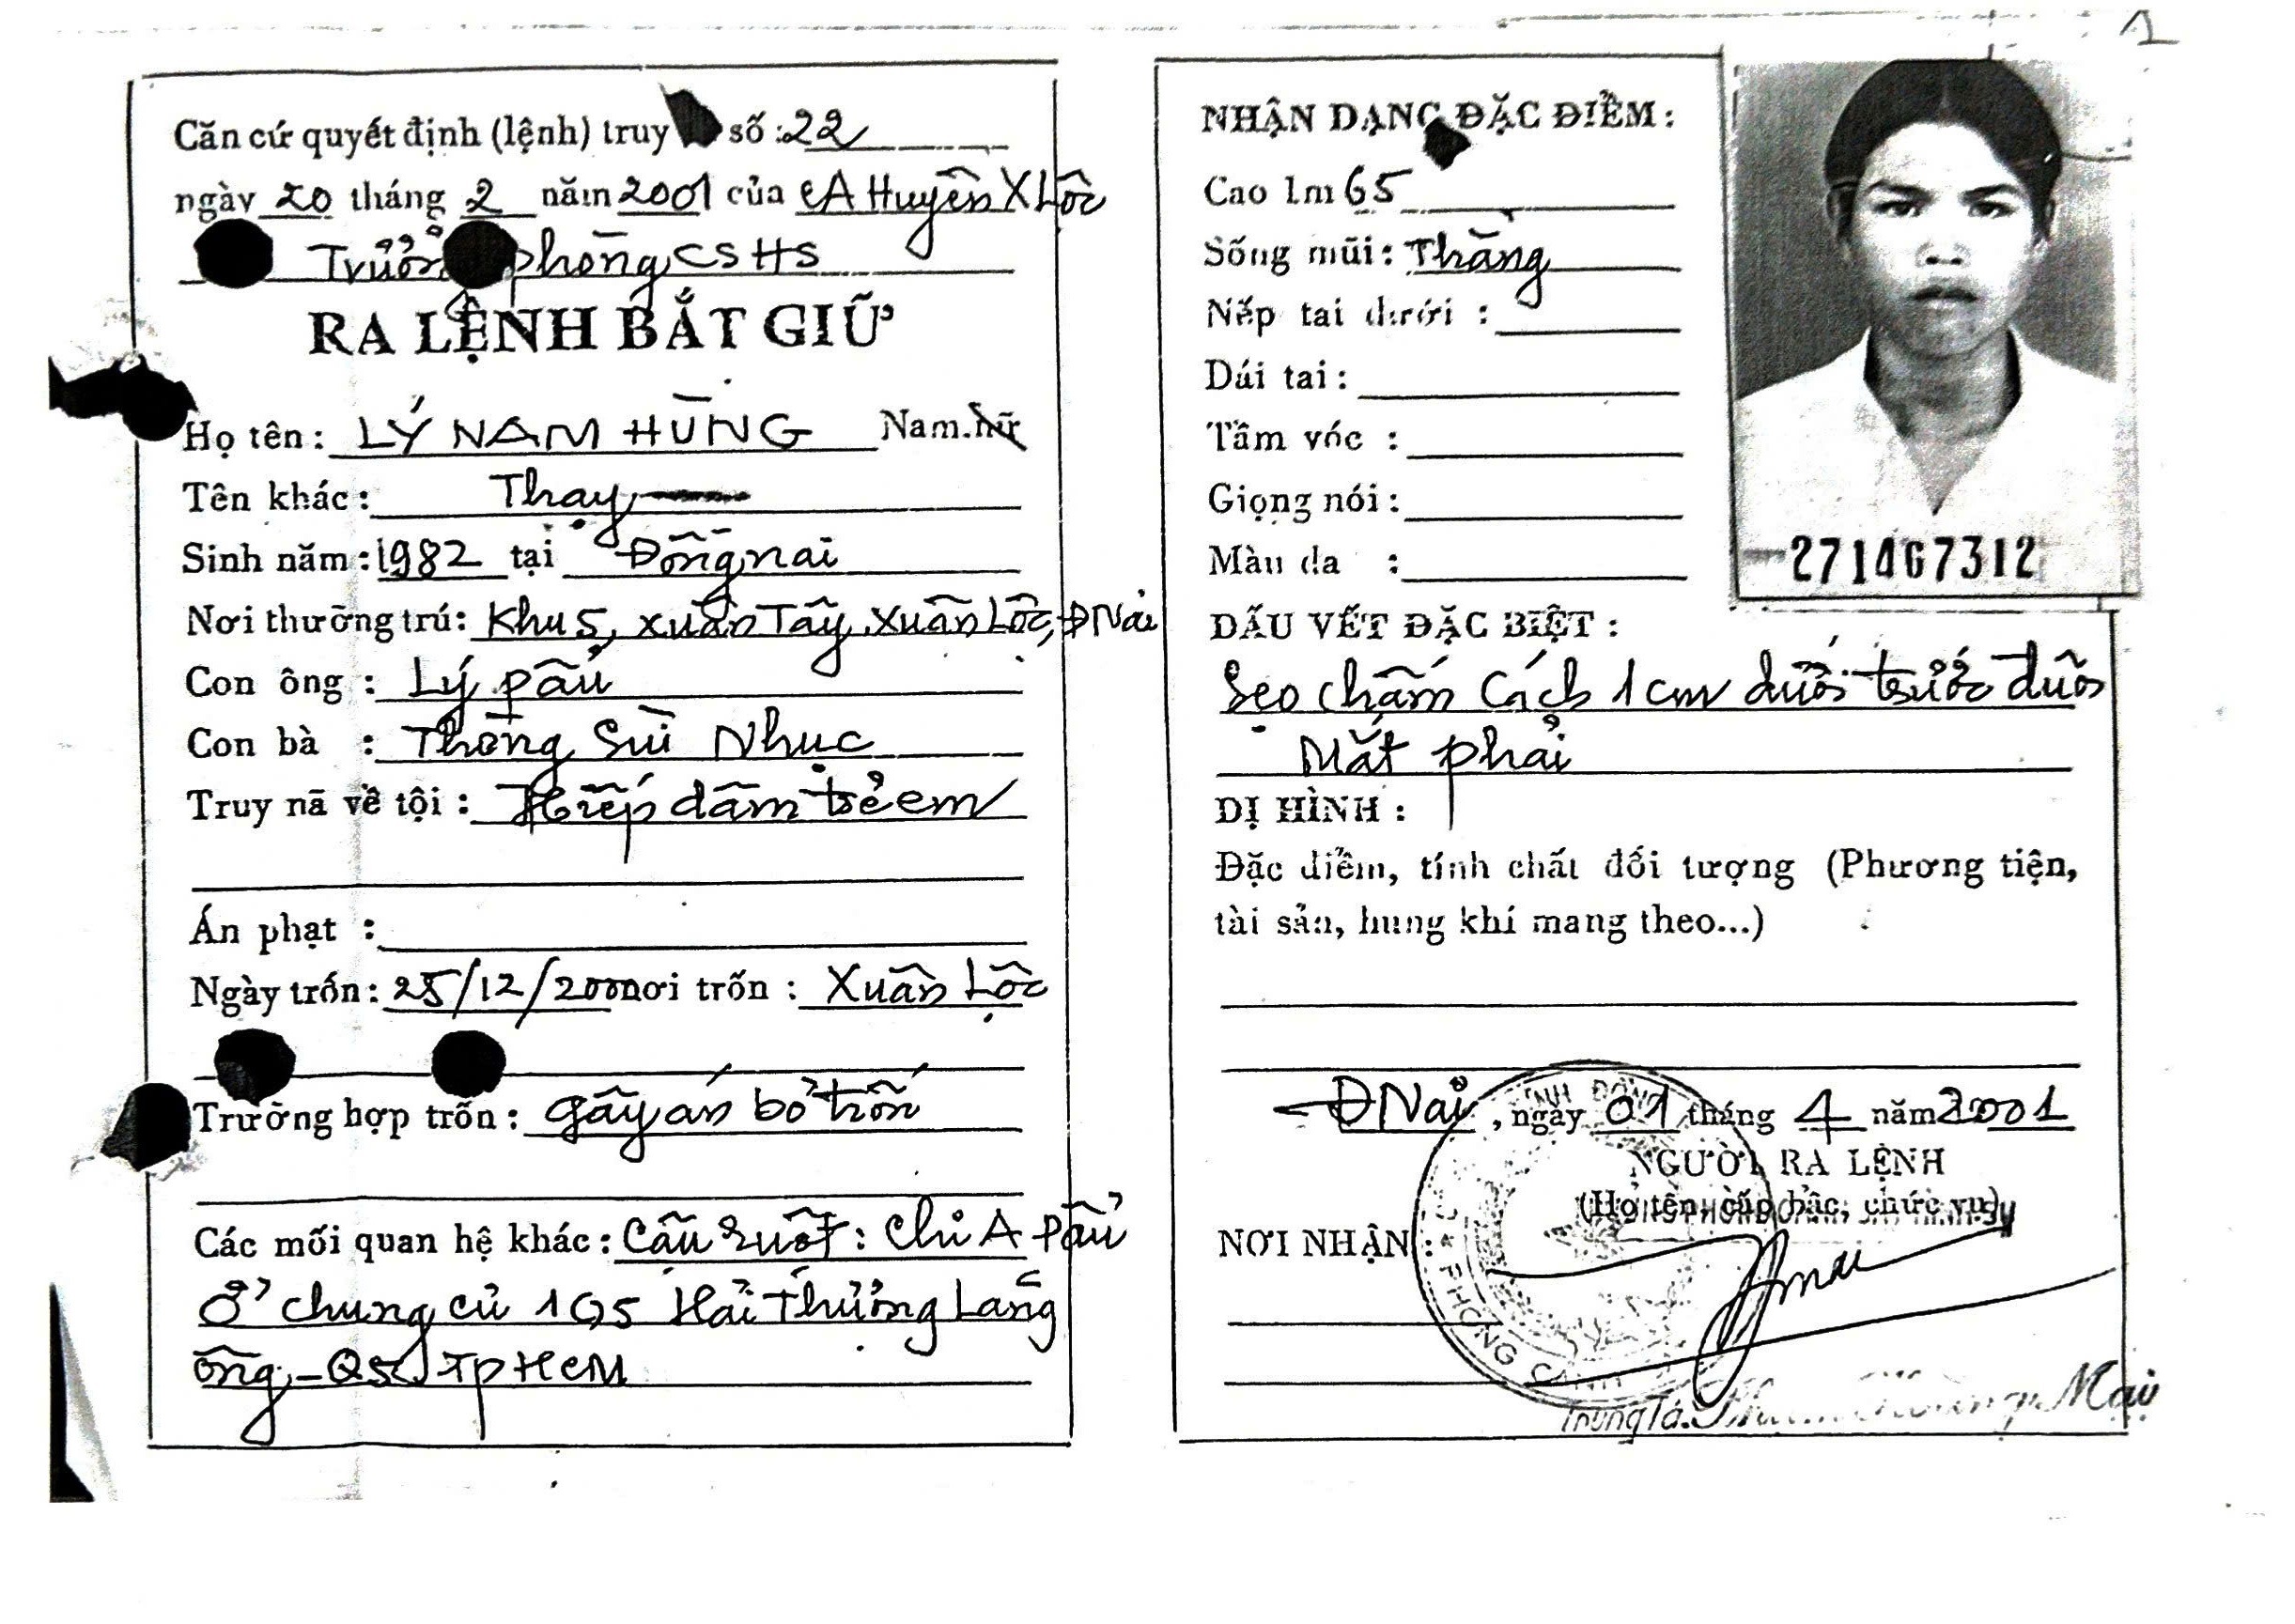 Căn cứ quyết định (lệnh) truy số: 22
ngày 20 tháng 2 năm 2001 của CA Huyện X Lộc
Trưởng phòng CSHS
RA LỆNH BẮT GIỮ
Họ tên: LÝ NAM HÙNG Nam. nữ
Tên khác: Thạy
Sinh năm: 1982 tại Đồng nai
Nơi thường trú: Khu 5, Xuân Tây, Xuân Lộc, Đ Nai
Con ông: Lý pẩu
Con bà: Thòng Sùi Nhục
Truy nã về tội: Hiếp dâm trẻ em
Án phạt:
Ngày trốn: 25/12/2000 nơi trốn: Xuân Lộc
Trường hợp trốn: gây án bỏ trốn
Các mối quan hệ khác: Cậu ruột: Chí A Pẩu
Ở chung cư 195 Hải Thượng Lãng
ông - Q5 TP HCM
1
NHẬN DẠNG ĐẶC ĐIỂM:
Cao 1m 65
Sống mũi: Thẳng
Nếp tai dưới:
Dái tai:
Tầm vóc:
Giọng nói:
Màu da:
271467312
DẤU VẾT ĐẶC BIỆT:
Sẹo chấm cách 1cm dưới trước đuôi
Mắt phải
DỊ HÌNH:
Đặc điểm, tính chất đối tượng (Phương tiện,
tài sản, hung khí mang theo...)
Đ Nai, ngày 01 tháng 4 năm 2001
NGƯỜI RA LỆNH
(Họ tên, cấp bậc, chức vụ)
NƠI NHẬN:
PHÒNG
Trung Tá.